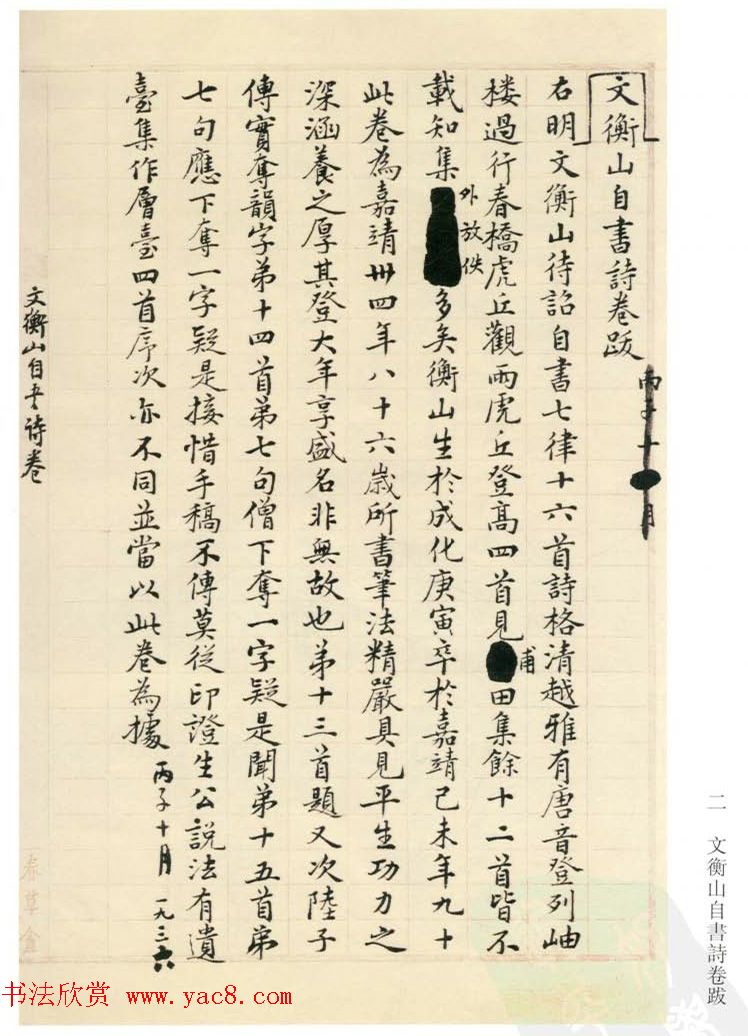 文衡山自書詩卷跋
丙子十月
右明文衡山待詔自書七律十六首詩格清越雅有唐音登列岫
楼過行春橋虎丘觀雨虎丘登高四首見甫田集餘十二首皆不
載知集外放佚多矣衡山生於成化庚寅卒於嘉靖己未年九十
此卷為嘉靖卅四年八十六歲所書筆法精嚴具見平生功力之
深涵養之厚其登大年享盛名非無故也弟十三首題又次陸子
傳實奪韻字弟十四首弟七句僧下奪一字疑是聞弟十五首弟
七句應下奪一字疑是接惜手稿不傳莫從印證生公說法有遺
臺集作層臺四首序次亦不同並當以此卷為據
丙子十月 一九三六
文衡山自書詩卷
春草盦
二 文衡山自書詩卷跋
书法欣赏 www.yac8.com